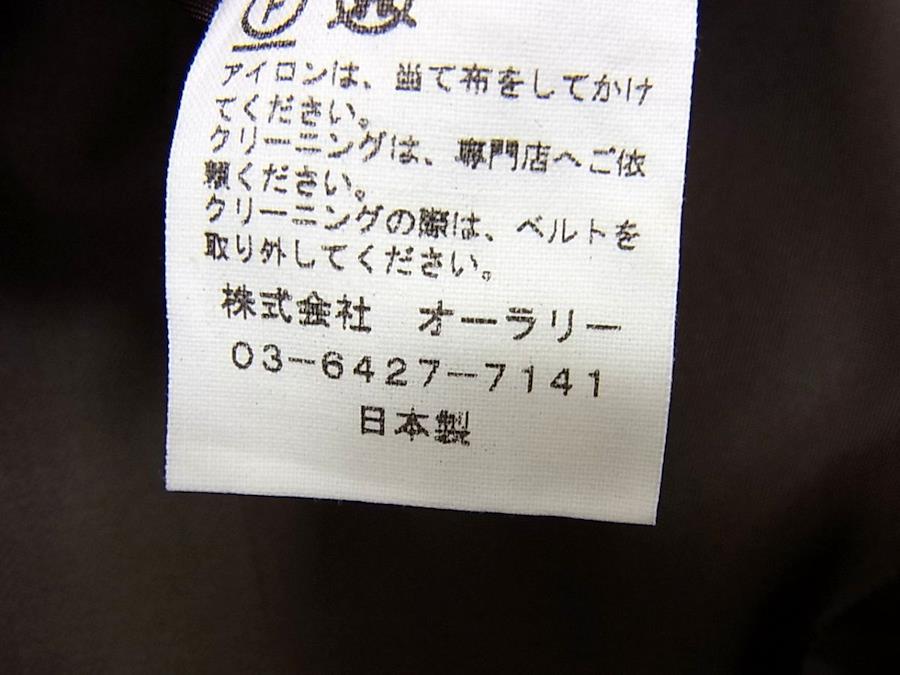 P
アイロンは、当て布をしてかけ
てください。
クリーニングは、専門店へご依
頼ください。
クリーニングの際は、ベルトを
取り外してください。
株式会社　オーラリー
03−6427−7141
日本製